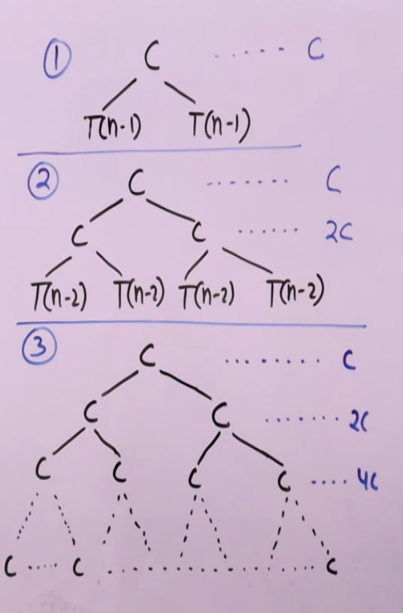 ① C ...... C
T(n-1) T(n-1)
② C ....... C
C C ...... 2C
T(n-2) T(n-2) T(n-2) T(n-2)
③ C ........ C
C C ........ 2C
C C C C .... 4C
C .... C .................... C